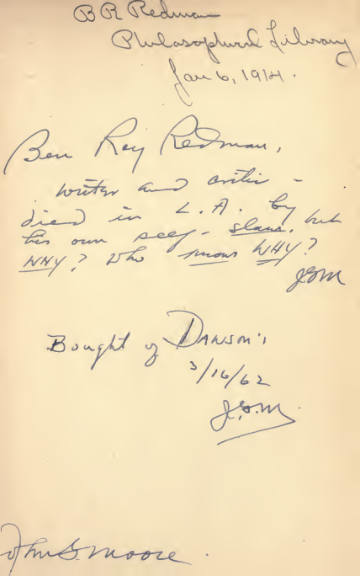 B R Redman
Philosophical Library
Jan 6, 1914.
Ben Ray Redman,
writer and critic -
died in L.A. by
his own self - slain, but
WHY? Who knows WHY?
JGM
Bought of Dawson's
3/16/62
J.G.M.
John G. Moore